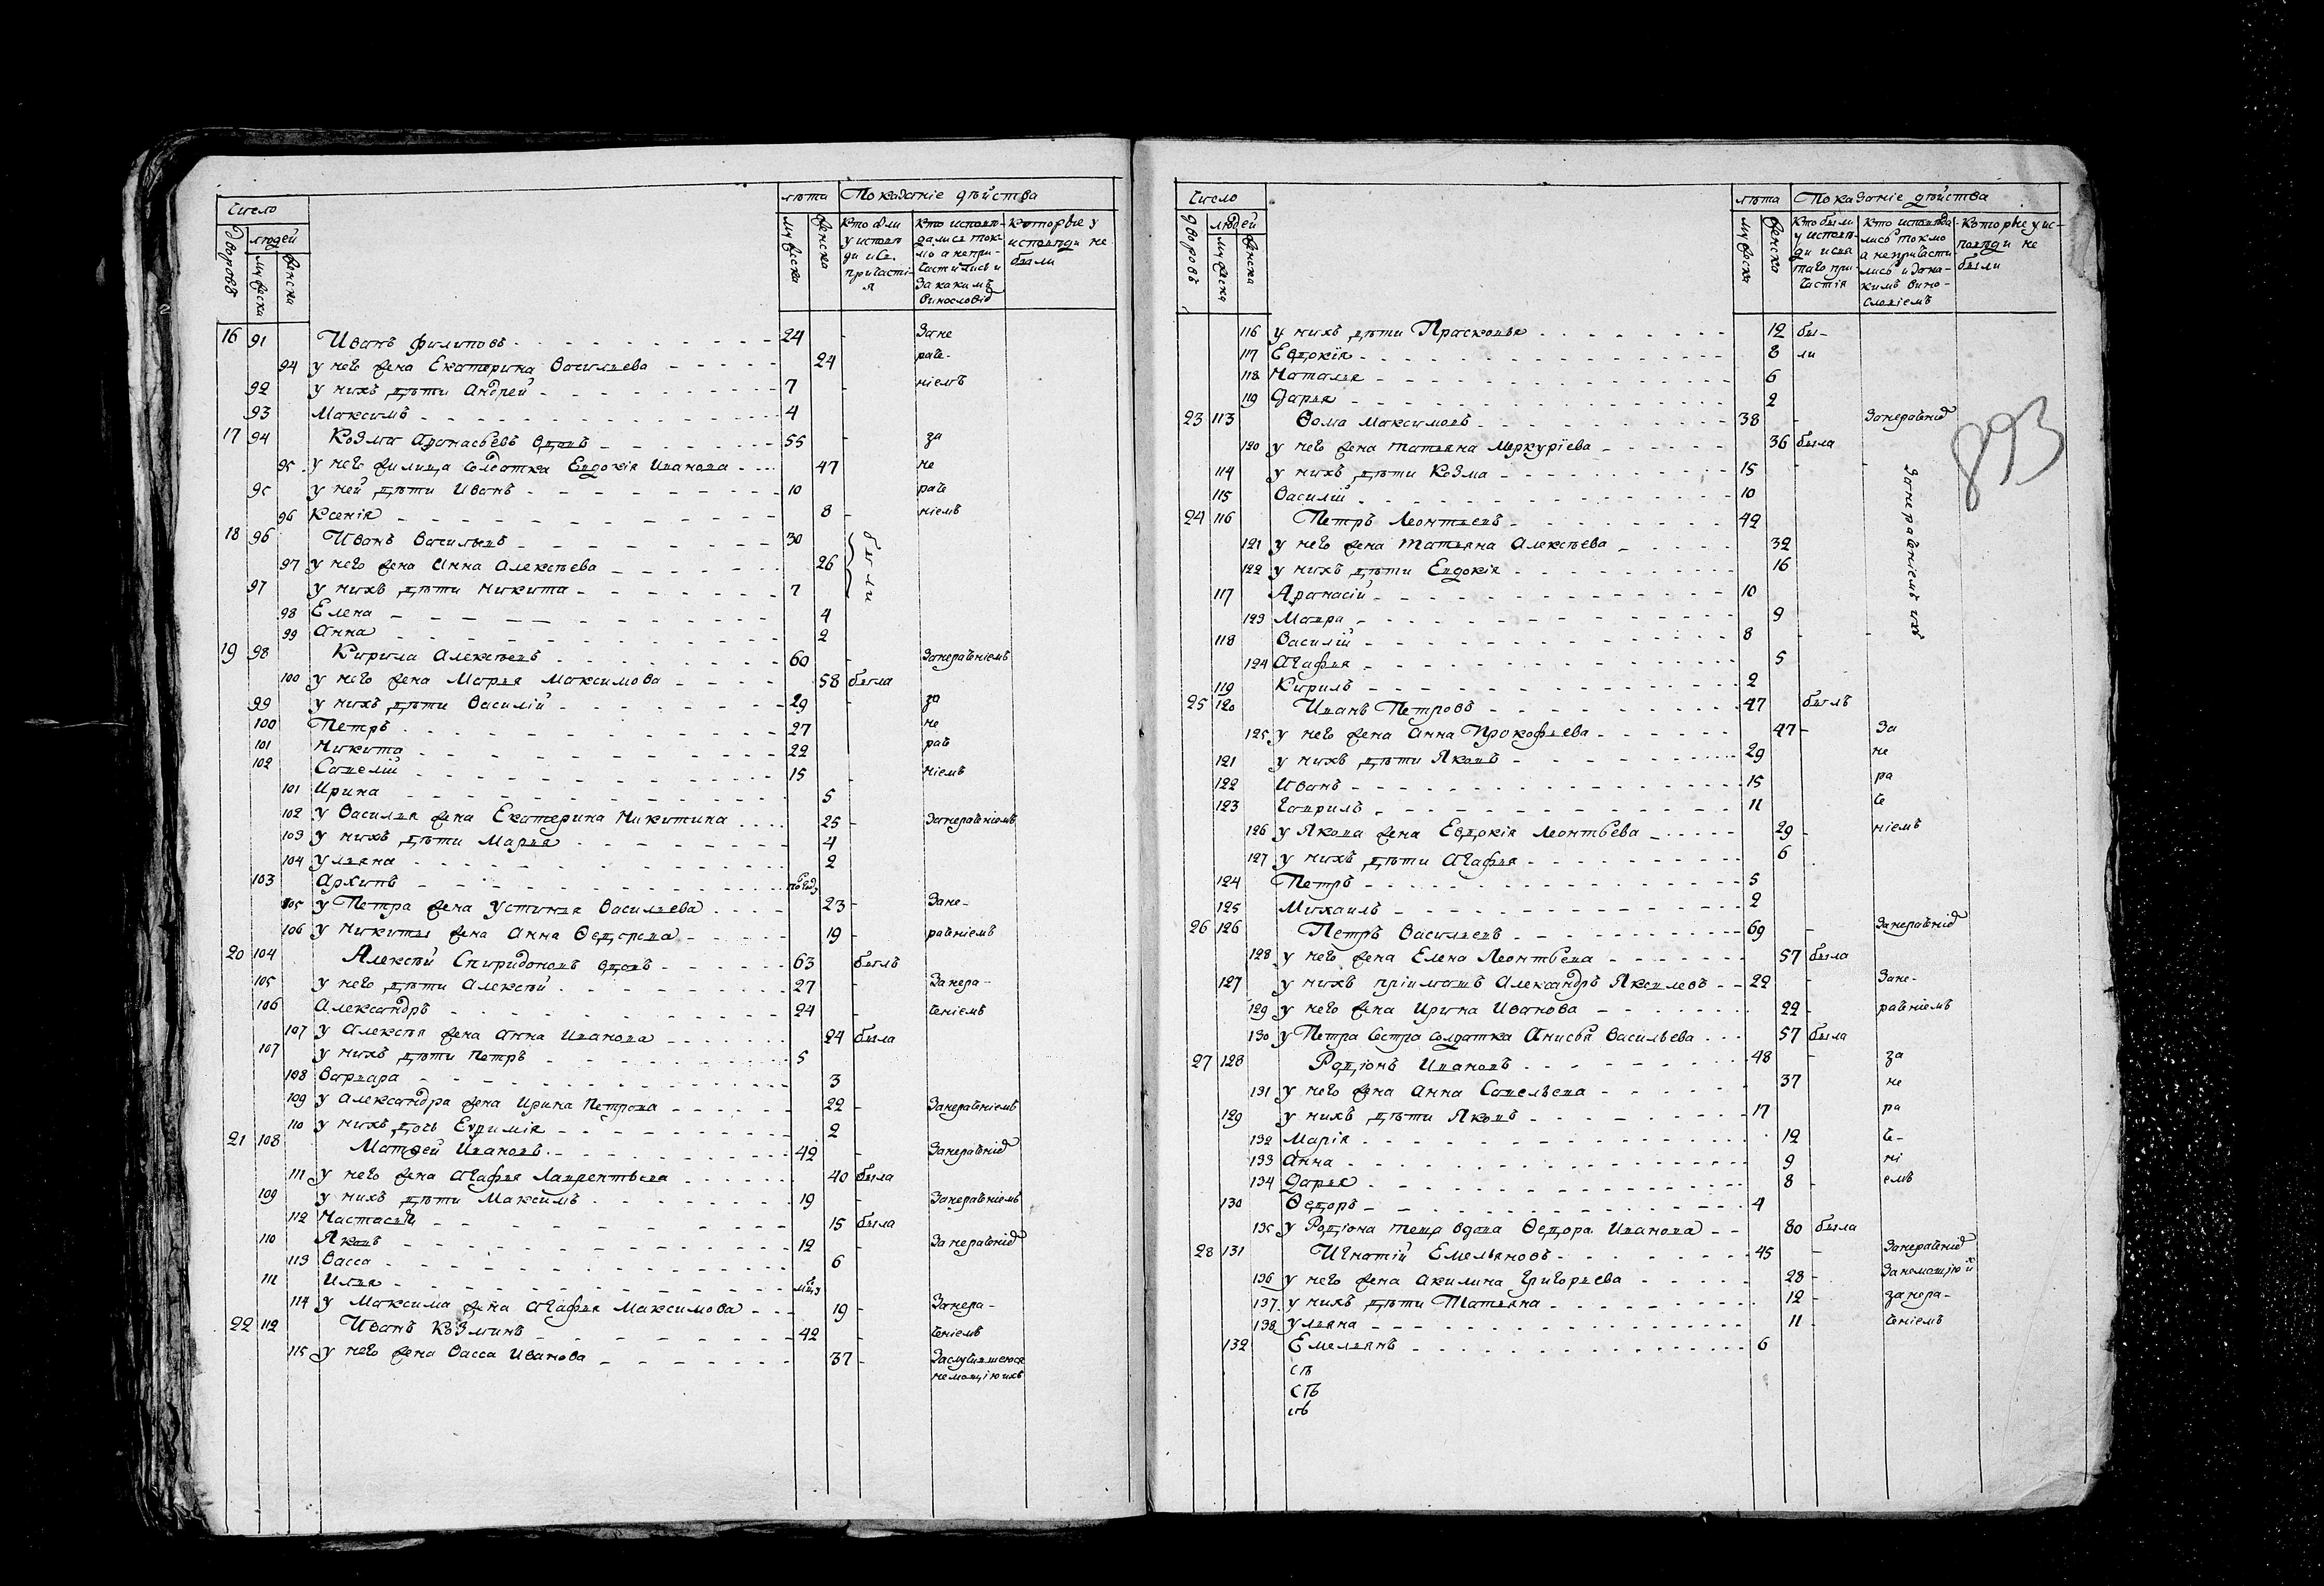 Число лѣта Показаніе дѣйства
Дворовъ людей мужеска женска мужеска женска
Кто были у исповѣди и св. причастія
Кто исповѣдались токмо а непричастились и за какимъ винословіе
которые у исповѣди не были
16 91 Иванъ Филиповъ 24 - Зане
94 у него жена Екатерина Васильева 24 раче-
92 у нихъ дѣти Андрей 7 - ніемъ
93 Максимъ 4
17 94 Козма Афонасьевъ вдовъ 55 - за
95 у него жилица солдатка Евдокія Иванова 47 не
95 у ней дѣти Иванъ 10 рач
96 Ксенія 8 - ніемъ
18 96 Иванъ Васильевъ 30 были
97 у него жена Анна Алексѣева 26
97 у нихъ дѣти Никита 7
98 Елена 4
99 Анна 2
19 98 Кирила Алексѣевъ 60 - Занерачніемъ
100 у него жена Марья Максимова 58 была
99 у нихъ дѣти Василій 29 - за
100 Петръ 27 не
101 Никита 22 рач
102 Савелій 15 - ніемъ
101 Ирина 5
102 у Василья жена Екатерина Никитина 25 - Занерачніемъ
103 у нихъ дѣти Марья 4
104 Ульяна 2
103 Архипъ полгоду
105 у Петра жена Устинья Васильева 23 - Зане-
106 у Никиты жена Анна Ѳедорова 19 - рачніемъ
20 104 Алексѣй Спиридоновъ вдовъ 63 былъ
105 у него дѣти Алексѣй 27 - Занера-
106 Александръ 24 - ченіемъ
107 у Алексѣя жена Анна Иванова 24 была
107 у нихъ дѣти Петръ 5
108 Варвара 3
109 у Александра жена Ирина Петрова 22 - Занерачніемъ
110 у нихъ дочь Еуфимія 2
21 108 Матвей Ивановъ 42 - Занерачніе
111 у него жена Агафья Лаврентьева 40 была
109 у нихъ дѣти Максимъ 19 - Занерачніемъ
112 Настасья 15 была
110 Яковъ 12 - Занерачніе
113 Васса 6
111 Илья мѣц
114 у Максима жена Агафья Максимова 19 - Занера-
22 112 Иванъ Козминъ 42 - ченіемъ
115 у него жена Васса Иванова 37 - Заслучившеюся
немощію ихъ
Число лѣта Показаніе дѣйства
Дворовъ людей мужеска женска мужеска женска
Кто были у исповѣди и святаго причастія
Кто исповѣдались токмо а непричастились и за какимъ винословіемъ
Которые у исповѣди не были
893
116 у нихъ дѣти Прасковья 12 бы-
117 Евдокія 8 ли
118 Наталья 6
119 Дарья 2
23 113 Ѳома Максимовъ 38 - Занерачніе
120 у него жена Татьяна Меркуріева 36 была
114 у нихъ дѣти Козма 15 - - Занераченіемъ ихъ
115 Василій 10
24 116 Петръ Леонтьевъ 42
121 у него жена Татьяна Алексѣева 32
122 у нихъ дѣти Евдокія 16
117 Афанасій 10
123 Мавра 9
118 Василій 8 - -
124 Агафья 5
119 Кирилъ 2
25 120 Иванъ Петровъ 47 былъ
125 у него жена Анна Прокофьева 47 - За
121 у нихъ дѣти Яковъ 29 не
122 Иванъ 15 ра
123 Гаврилъ 11 че
126 у Якова жена Евдокія Леонтьева 29 - ніемъ
127 у нихъ дѣти Агафья 6
124 Петръ 5
125 Михаилъ 2
26 126 Петръ Васильевъ 69 - Занерачніе
128 у него жена Елена Леонтьева 57 была
127 у нихъ пріимышъ Александръ Яковлевъ 22 - Зане-
129 у него жена Ирина Иванова 22 - рачніемъ
130 у Петра сестра солдатка Анисья Васильева 57 была
27 128 Родіонъ Ивановъ 48 - за
131 у него жена Анна Савельева 37 не
129 у нихъ дѣти Яковъ 17 ра
132 Марія 12 че-
133 Анна 9 ні
134 Дарья 8 - емъ
130 Ѳедоръ 4
135 у Родіона теща вдова Ѳедора Иванова 80 была
28 131 Игнатій Емельяновъ 45 - Занерачніе
136 у него жена Акилина Григорьева 28 - Занемощію
137 у нихъ дѣти Татьяна 12 - занера-
138 Ульяна 11 - ченіемъ
132 Емельянъ 6